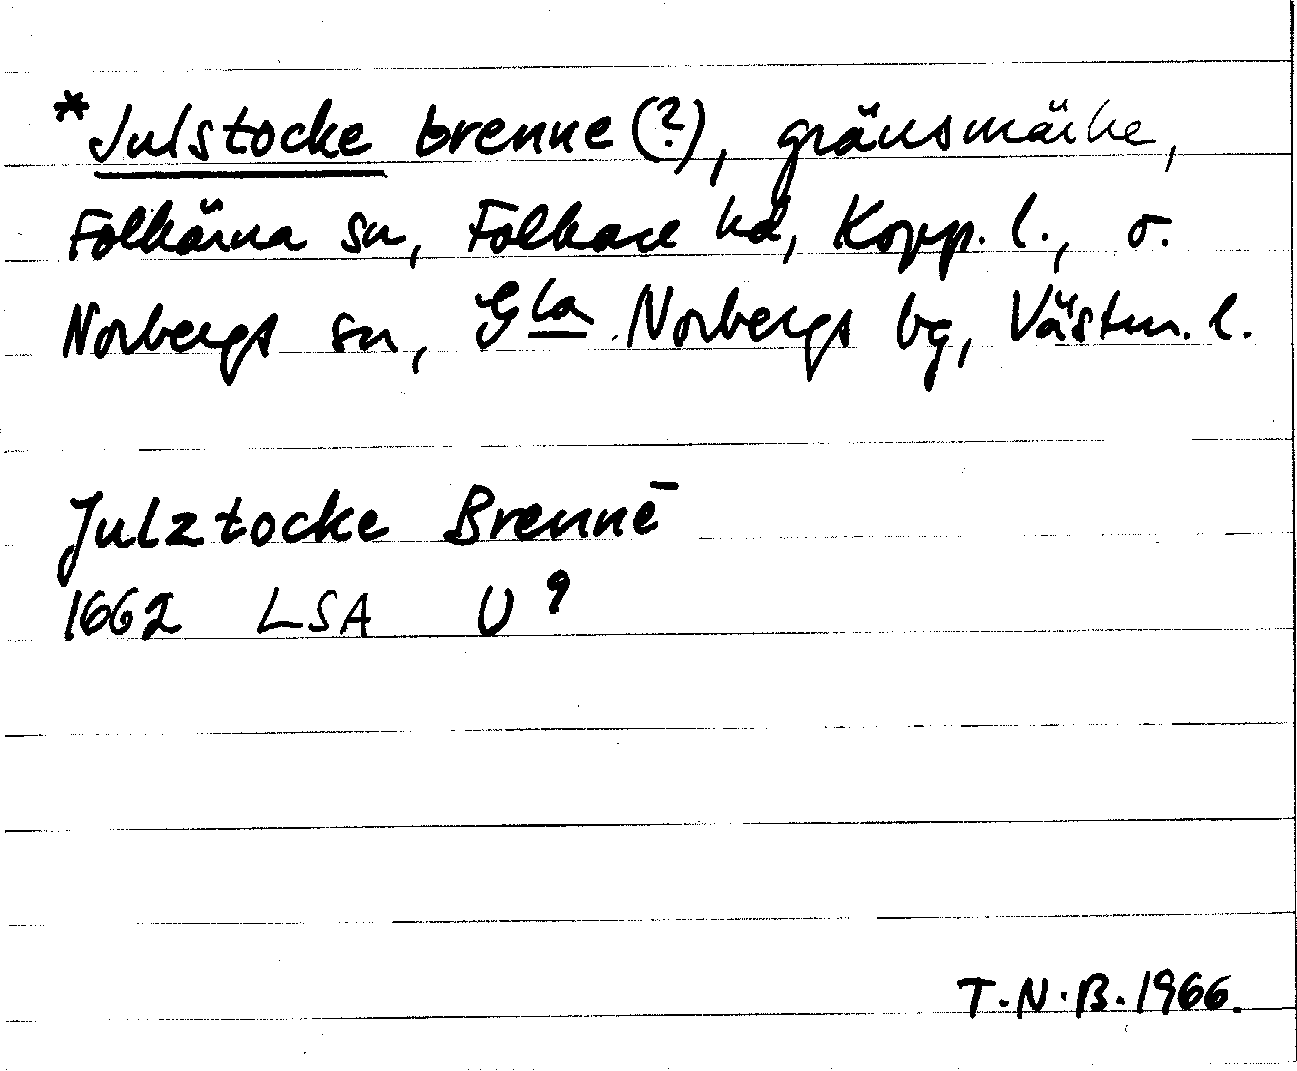 *Julstocke brenne (?), gränsmärke,
Folkärna sn, Folkare hd, Kopp. l., o.
Norbergs sn, Gla Norbergs bg, Västm. l.
Julztocke Brennē
1662 LSA U 9
T.N.B. 1966.